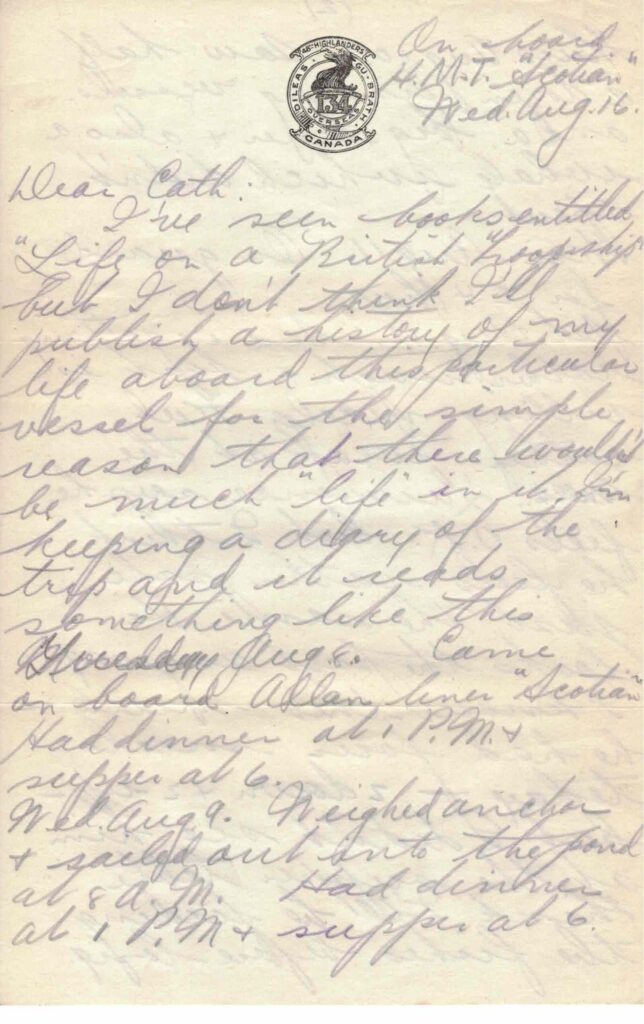 48TH HIGHLANDERS
DILEAS GU BRATH
134
OVERSEAS
CANADA
On board
H.M.T. "Scotian"
Wed. Aug. 16
Dear Cath:
I've seen books entitled
"Life on a British Troopship"
but I don't think I'll
publish a history of my
life aboard this particular
vessel for the simple
reason that there wouldn't
be much "life" in it. I'm
keeping a diary of the
trip and it reads
something like this
Tuesday Aug 8. Came
on board Allan liner "Scotian"
Had dinner at 1 P.M. +
supper at 6.
Wed. Aug 9. Weighed anchor
+ sailed out onto the pond
at 8 A.M. Had dinner
at 1 P.M + supper at 6.